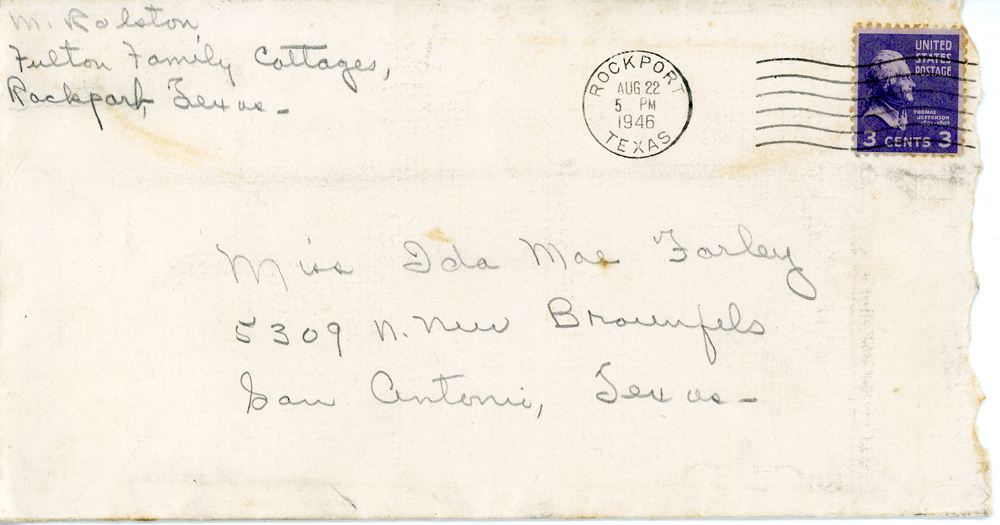 M. Ralston,
Fulton Family Cottages,
Rockport, Texas -
ROCKPORT
AUG 22
5 PM
1946
TEXAS
UNITED
STATES
POSTAGE
THOMAS
JEFFERSON
3 CENTS 3
Miss Ida Mae Farley
5309 N. New Braunfels
San Antonio, Texas -